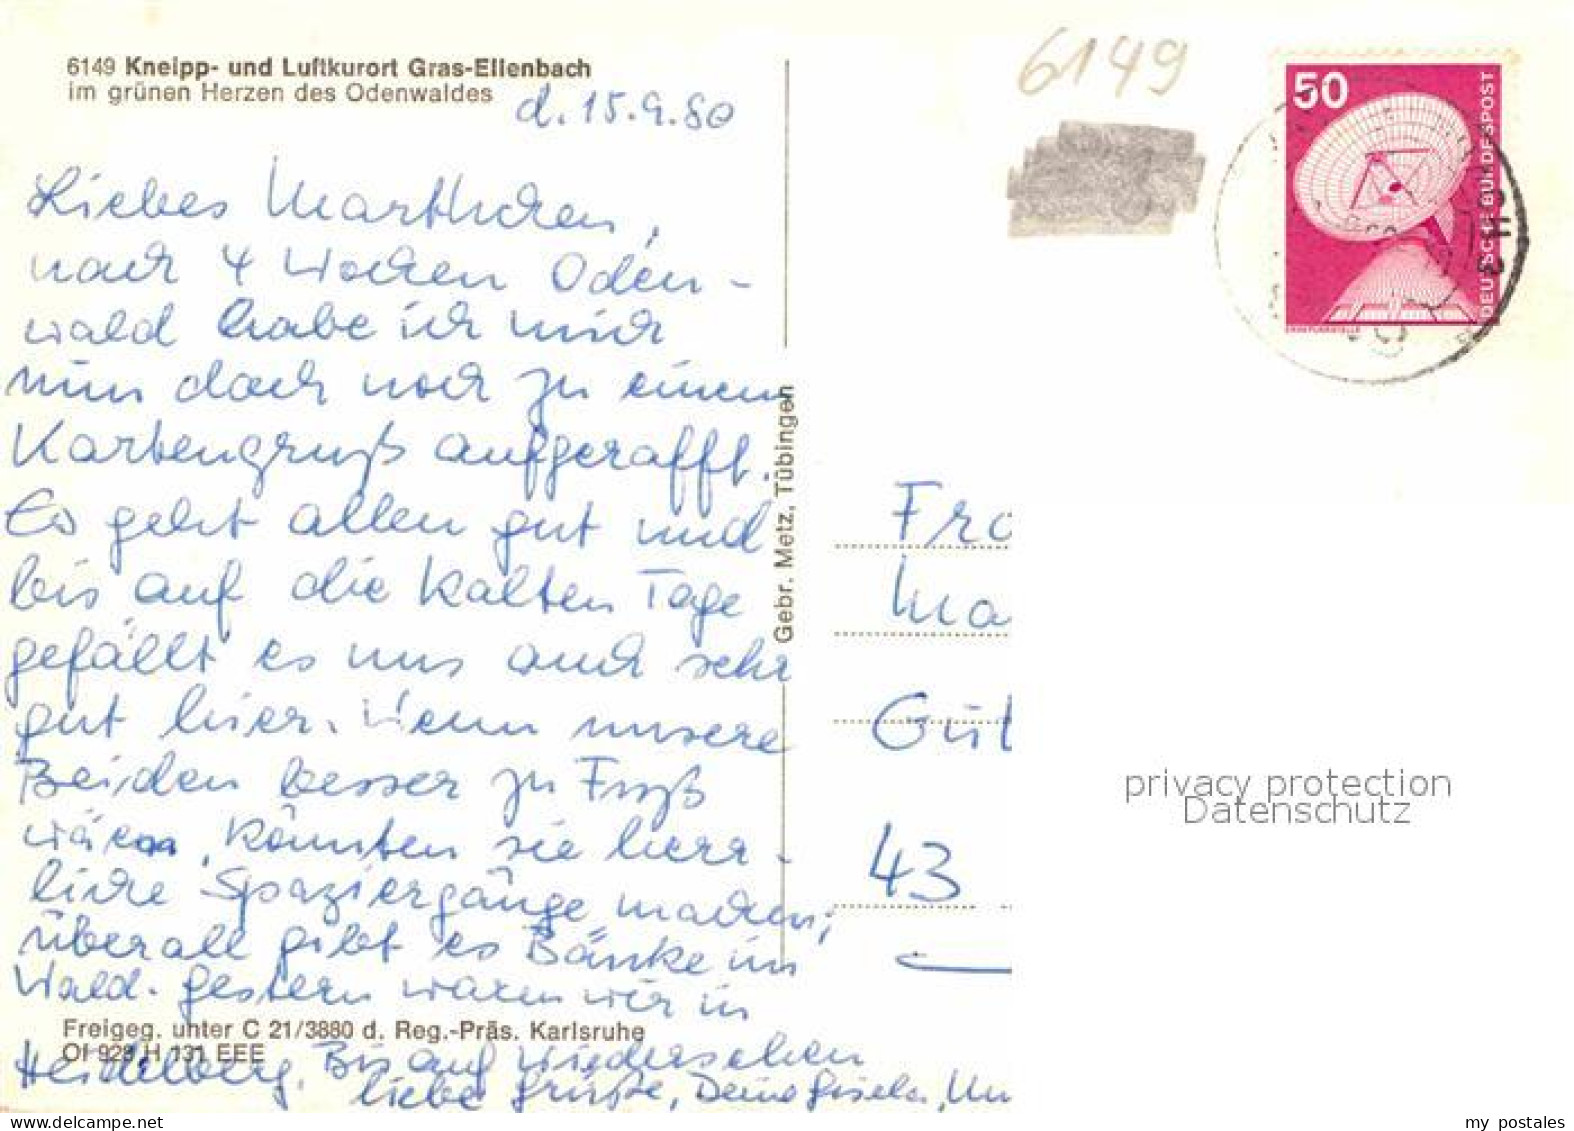 6149 Kneipp- und Luftkurort Gras-Ellenbach
im grünen Herzen des Odenwaldes
d. 15.9.80
Liebes Marthchen,
nach 4 Wochen Oden-
wald habe ich mich
nun doch noch zu einem
Kartengruß aufgerafft.
Es geht allen gut und
bis auf die kalten Tage
gefällt es uns auch sehr
gut hier. Wenn unsere
Beiden besser zu Fuß
wären, könnten sie herr-
liche Spaziergänge machen;
überall gibt es Bänke im
Wald. Gestern waren wir in
Heidelberg. Bis auf Wiedersehen
liebe Grüße, Deine Gisela, Un
Freigeg. unter C 21/3880 d. Reg.-Präs. Karlsruhe
Of 928 H 131 EEE
Gebr. Metz, Tübingen
6149
50
DEUTSCHE BUNDESPOST
ERDEFUNKSTELLE
Fra
Ma
Güt
43
privacy protection
Datenschutz
www.delcampe.net
my_postales